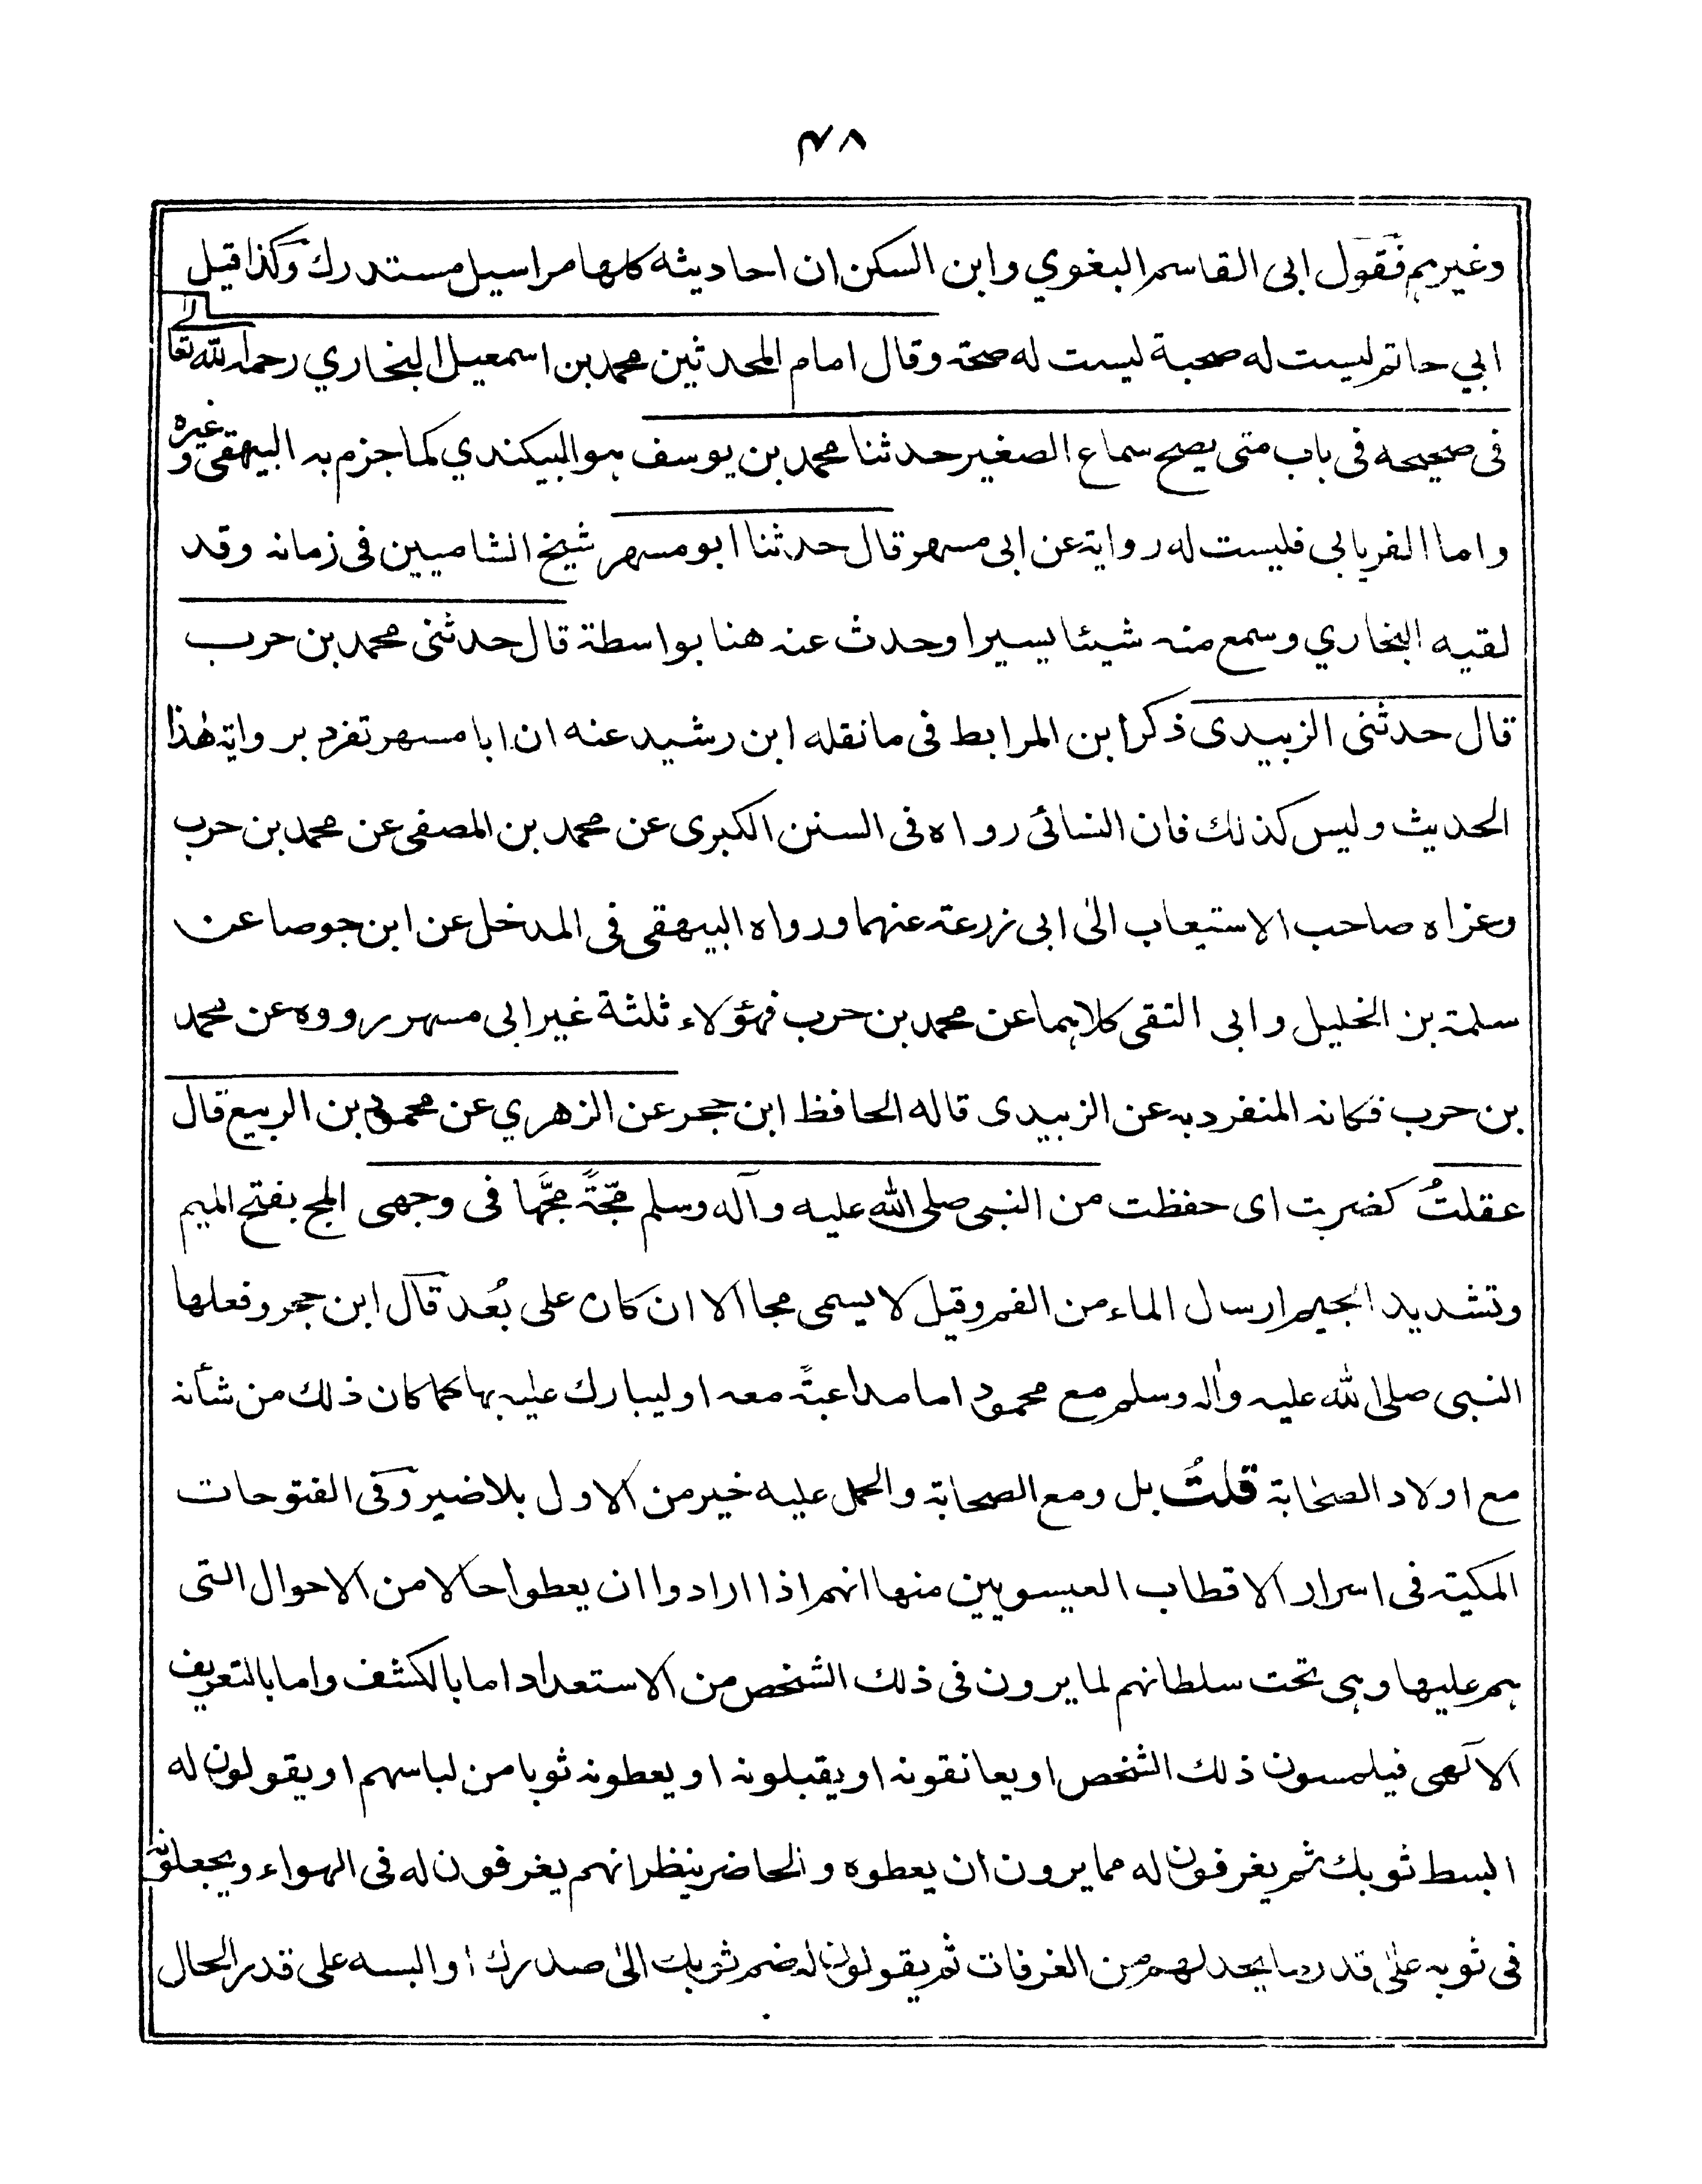 ٤٨
وغيرهم فقول ابى القاسم البغوي وابن السكن ان احاديثه كلها مراسيل مستدرك وكذا قيل
ابي حاتم ليست له صحبة ليست له صحة وقال امام المحدثين محمد بن اسمعيل البخاري رحمه الله تعالى
فى صحيحه فى باب متى يصح سماع الصغير حدثنا محمد بن يوسف هو البيكندي كما جزم به البيهقى وغيره
واما الفريابي فليست له رواية عن ابى مسهر قال حدثنا ابو مسهر شيخ الشاميين فى زمانه وقد
لقيه البخاري وسمع منه شيئا يسيرا وحدث عنه هنا بواسطة قال حدثنى محمد بن حرب
قال حدثنى الزبيدى ذكر ابن المرابط فى ما نقله ابن رشيد عنه ان ابا مسهر تفرد برواية هٰذا
الحديث وليس كذلك فان النسائى رواه فى السنن الكبرى عن محمد بن المصفى عن محمد بن حرب
وعزاه صاحب الاستيعاب الىٰ ابى زرعة عنهما ورواه البيهقى فى المدخل عن ابن جوصا عن
سلمة بن الخليل وابى التقى كلاهما عن محمد بن حرب فهؤلاء ثلثة غير ابى مسهر رووه عن محمد
بن حرب فكانه المنفرد به عن الزبيدى قاله الحافظ ابن حجر عن الزهري عن محمود بن الربيع قال
عقلتُ كضربت اى حفظت من النبى صلى الله عليه وآله وسلم مجّةً مجّها فى وجهى المج بفتح الميم
وتشديد الجيم ارسال الماء من الفم وقيل لا يسمى مجا الا ان كان على بُعد قال ابن حجر وفعلها
النبى صلى الله عليه واٰله وسلم مع محمود اما مداعبةً معه او ليبارك عليه بها كما كان ذلك من شأنه
مع اولاد الصحابة قلتُ بل ومع الصحابة والحمل عليه خير من الاول بلا ضير وفى الفتوحات
المكية فى اسرار الاقطاب العيسويين منها انهم اذا ارادوا ان يعطوا حالا من الاحوال التى
هم عليها وهى تحت سلطانهم لما يرون فى ذلك الشخص من الاستعداد اما بالكشف واما بالتعريف
الآلهى فيلمسون ذلك الشخص او يعانقونه او يقبلونه او يعطونه ثوبا من لباسهم او يقولون له
ابسط ثوبك ثم يغرفون له مما يرون ان يعطوه والحاضر ينظر انهم يغرفون له فى الهواء ويجعلونه
فى ثوبه علىٰ قدر ما يحد لهم من الغرفات ثم يقولون له ضم ثوبك الىٰ صدرك او البسه على قدر الحال